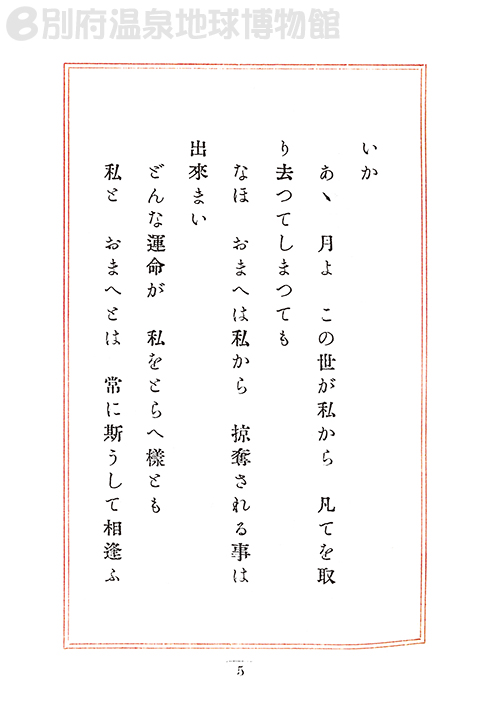 別府温泉地球博物館
いか
あヽ　月よ　この世が私から　凡てを取
り去つてしまつても
なほ　おまへは私から　掠奪される事は
出來まい
どんな運命が　私をとらへ樣とも
私と　おまへとは　常に斯うして相逢ふ
5